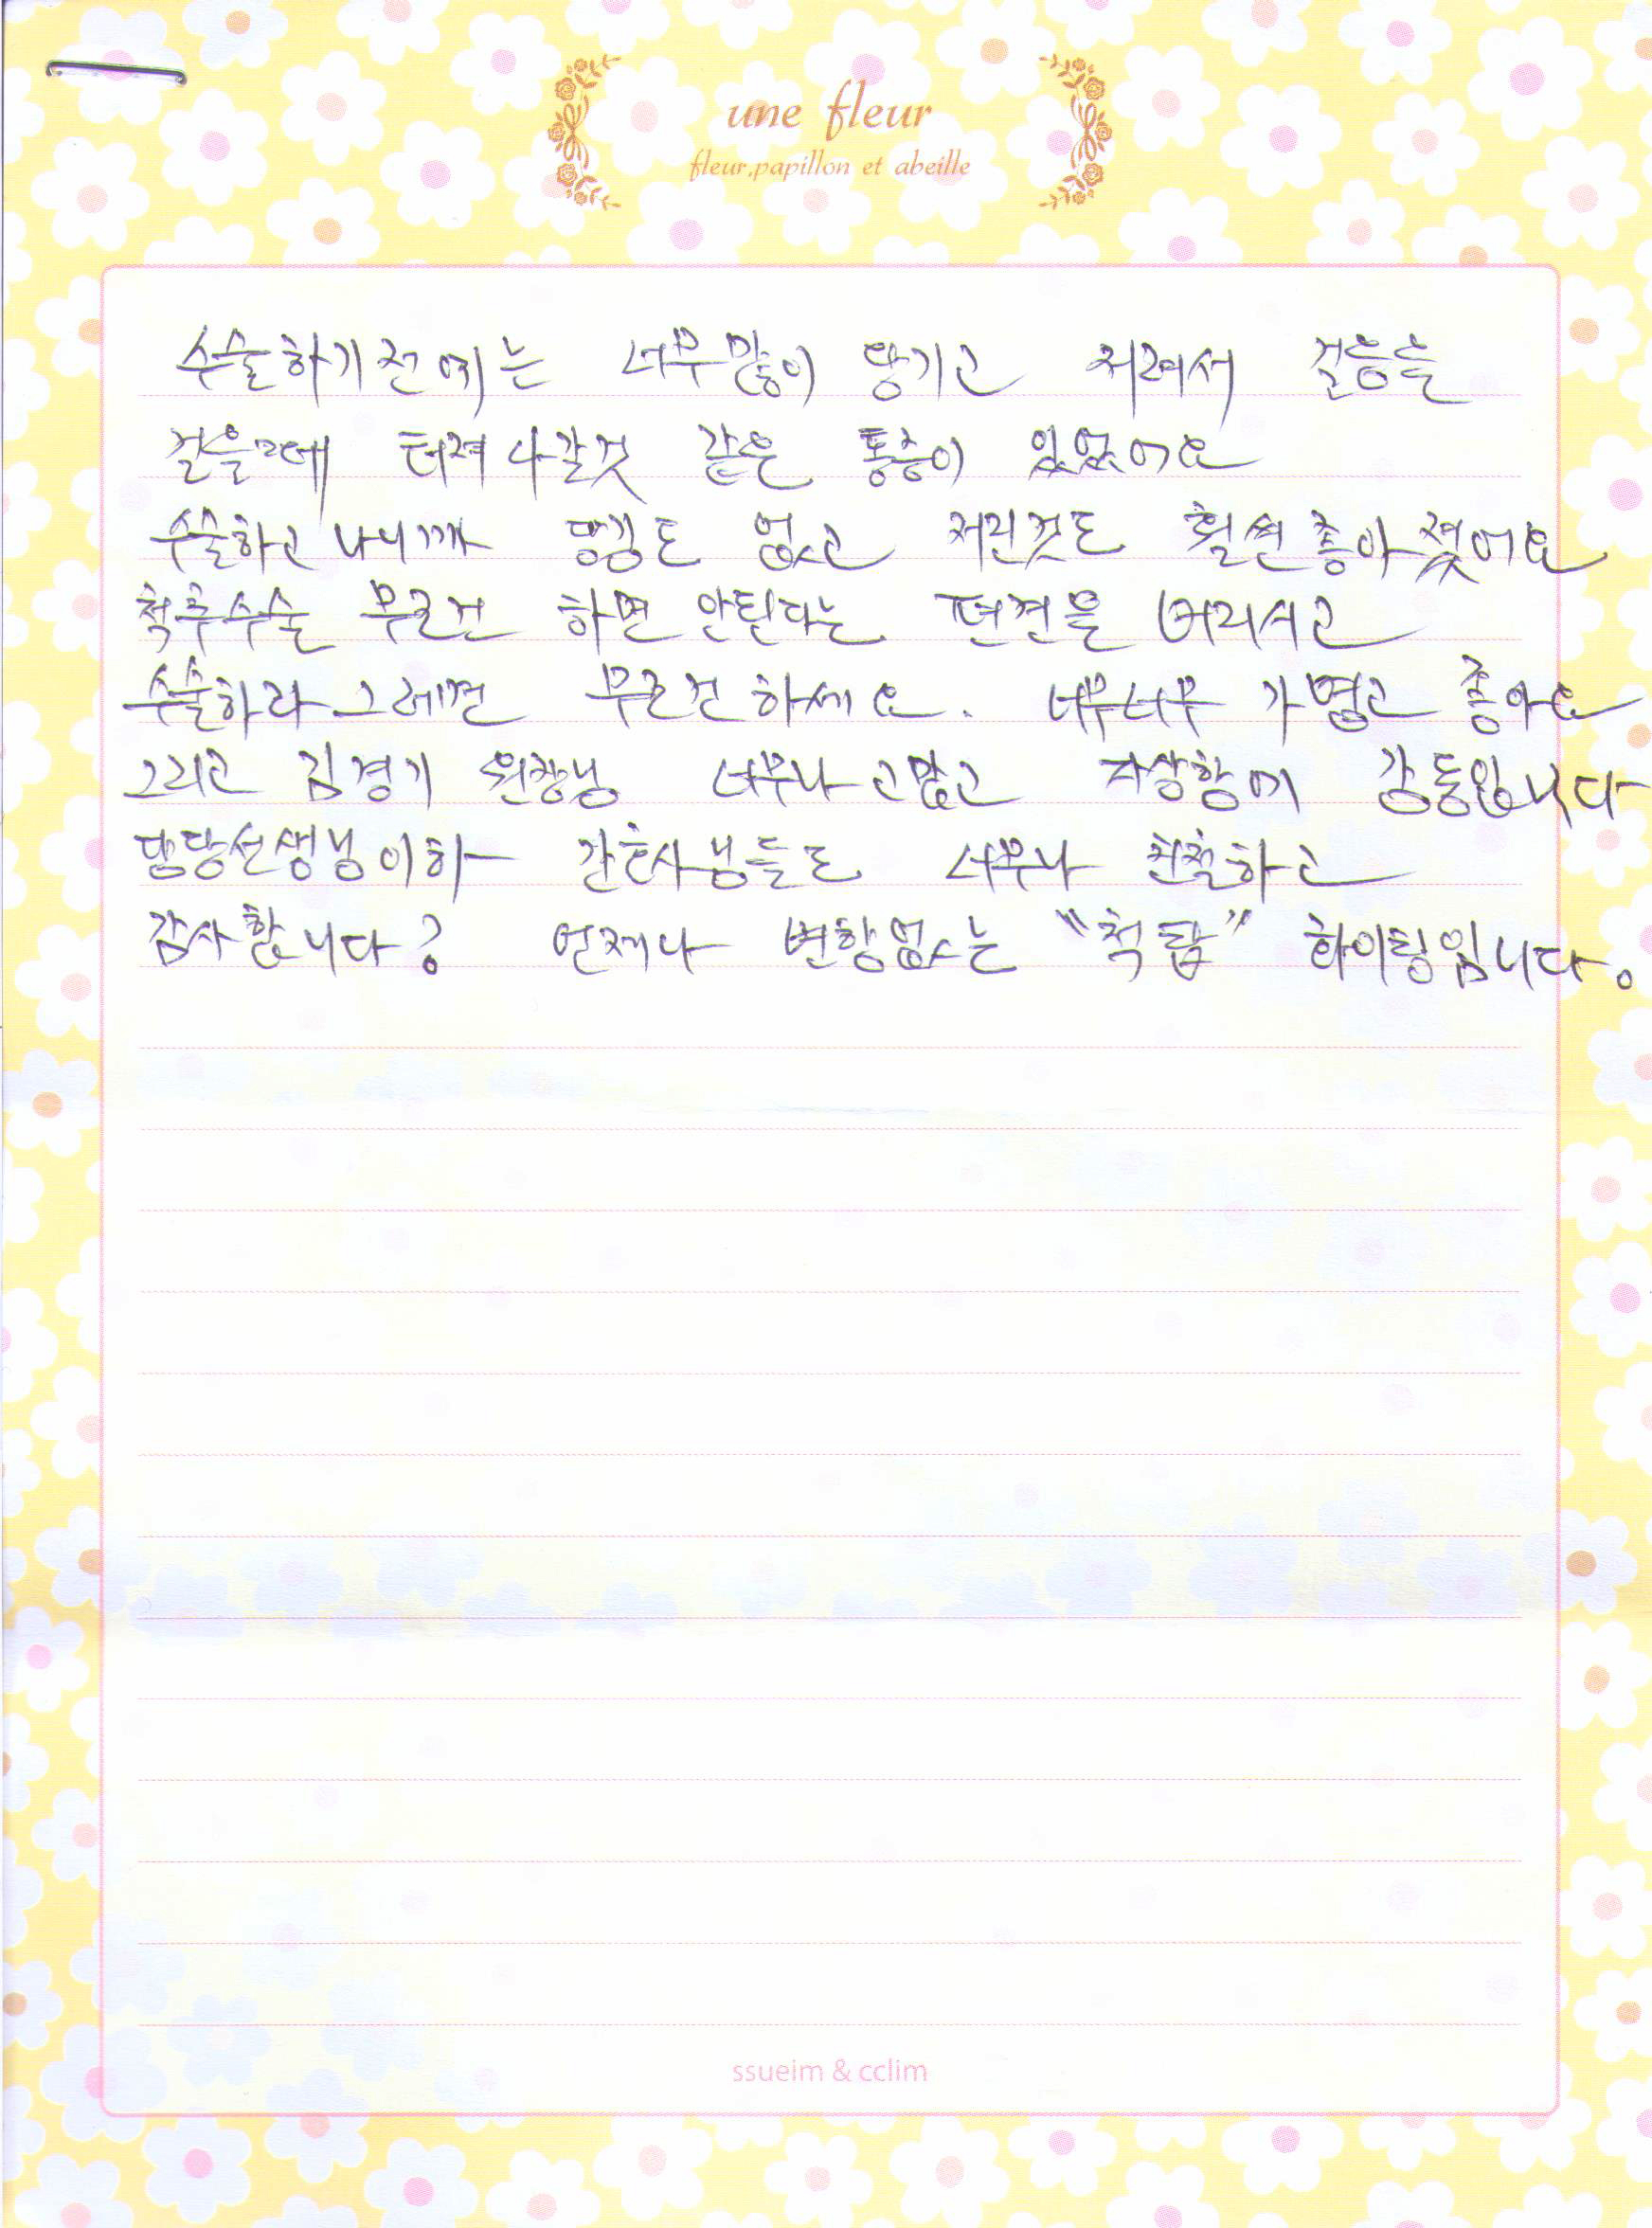 une fleur
fleur,papillon et abeille
수술하기전에는 너무많이 땅기고 저려서 걸음을
걸을때 터져나갈것 같은 통증이 있었어요
수술하고나니까 땅김도 없고 저린것도 훨씬좋아졌어요
척추수술 무조건 하면 안된다는 편견을 버리시고
수술하라그레면 무조건하세요. 너무너무 가볍고 좋아요
그리고 김경기 원장님 너무나 고맙고 자상함에 감동입니다
담당선생님이하 간호사님들도 너무나 친절하고
감사합니다? 언제나 변함없는 "척탑" 화이팅입니다.
ssueim & cclim